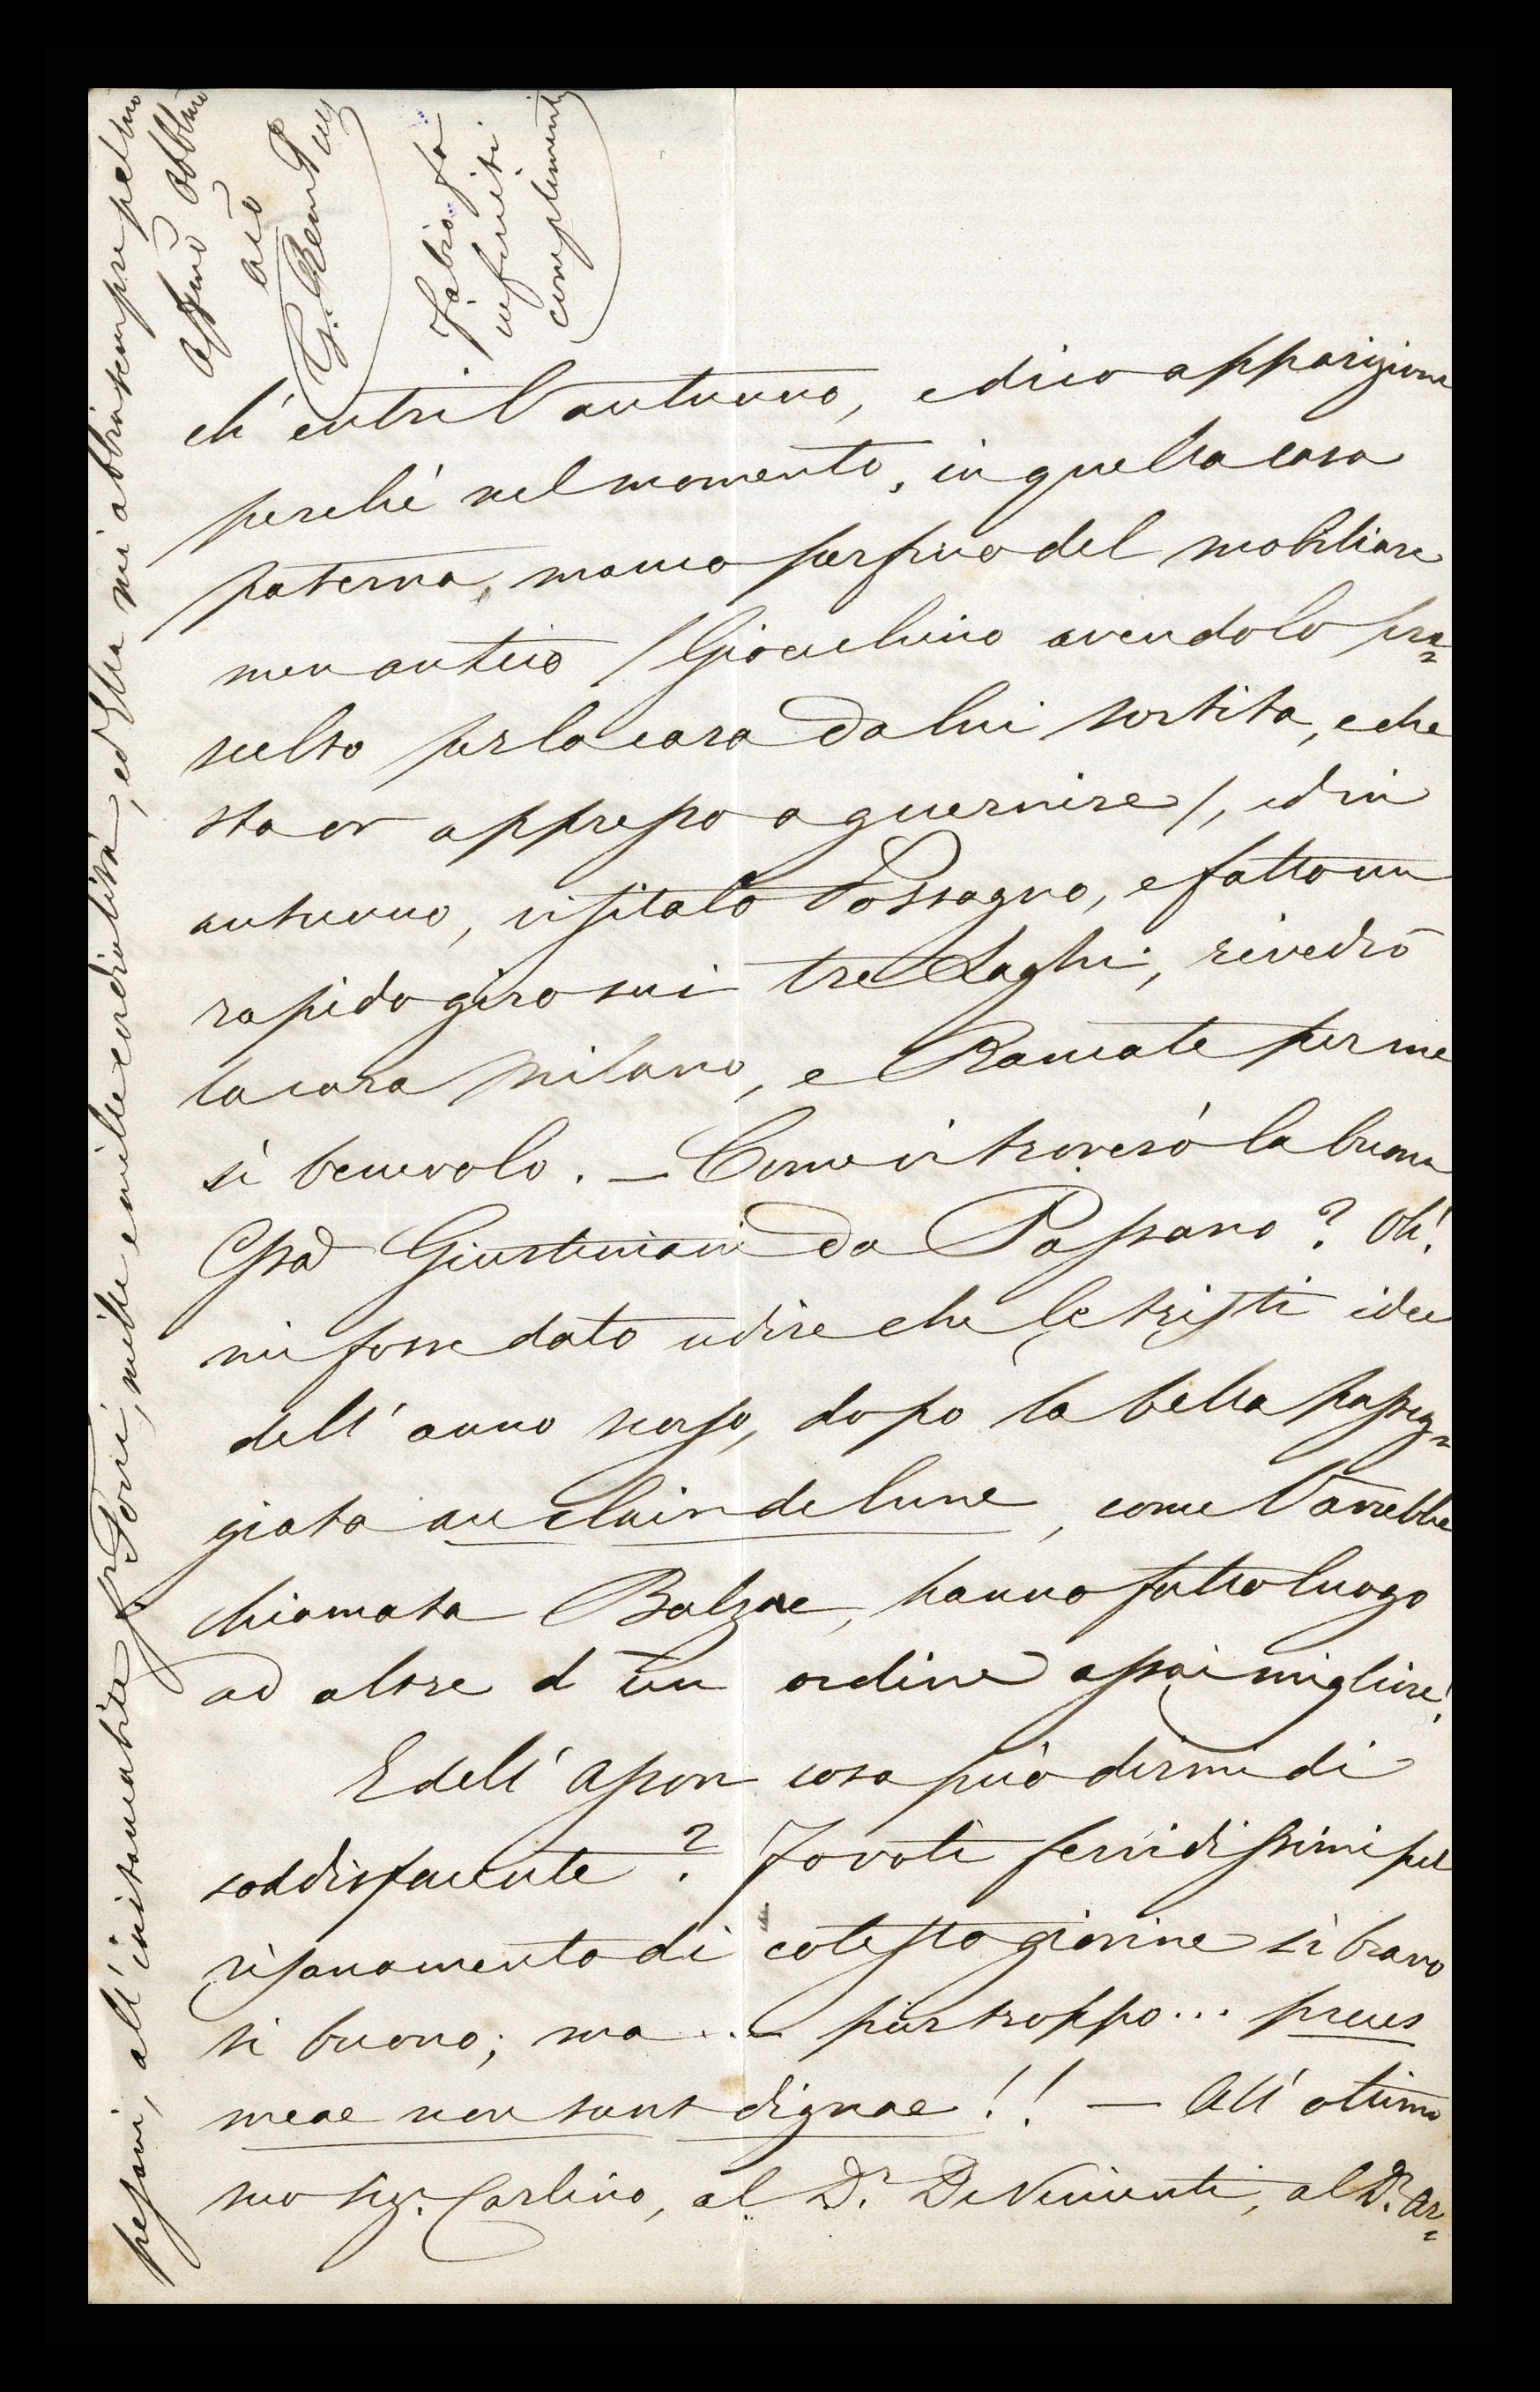 ch' entri l'autunno, e dico apparizione
perchè nel momento, in quella casa
paterna, manco perfino del mobiliare
men antico /Gioachino avendolo pre=
scelto per la casa da lui sortita, e che
sta or appresso a guernire/, ed in
autunno, visitato Possagno, e fatto un
rapido giro sui tre Laghi, rivedrò
la cara Milano, e Rancate per me
sì benevolo. — Come vi troverò la buona
Cssa Giustiniani da Passano? Oh!
mi fosse dato udire che le tristi idee
dell' anno scorso, dopo la bella passeg=
giata au clair de lune, come l'avrebbe
chiamata Balzac, hanno fatto luogo
ad altre d'un ordine assai migliore!
E dell' Apson cosa può dirmi di
soddisfacente? Fo voti fervidissimi pel
risanamento di cotesto giovine sì bravo
sì buono; ma ... pur troppo... preces
meae non sunt dignae!! — All' ottimo
suo Sigr. Carlino, al Dr. De Vincenti, al Dr. Ar=
pesani, all' inestimabile Sr Pori, mille e mille cordialità, ed Ella mi abbia sempre pel suo
Affmo Obblmo
aico
G.
Fabio fa
infiniti
complimenti